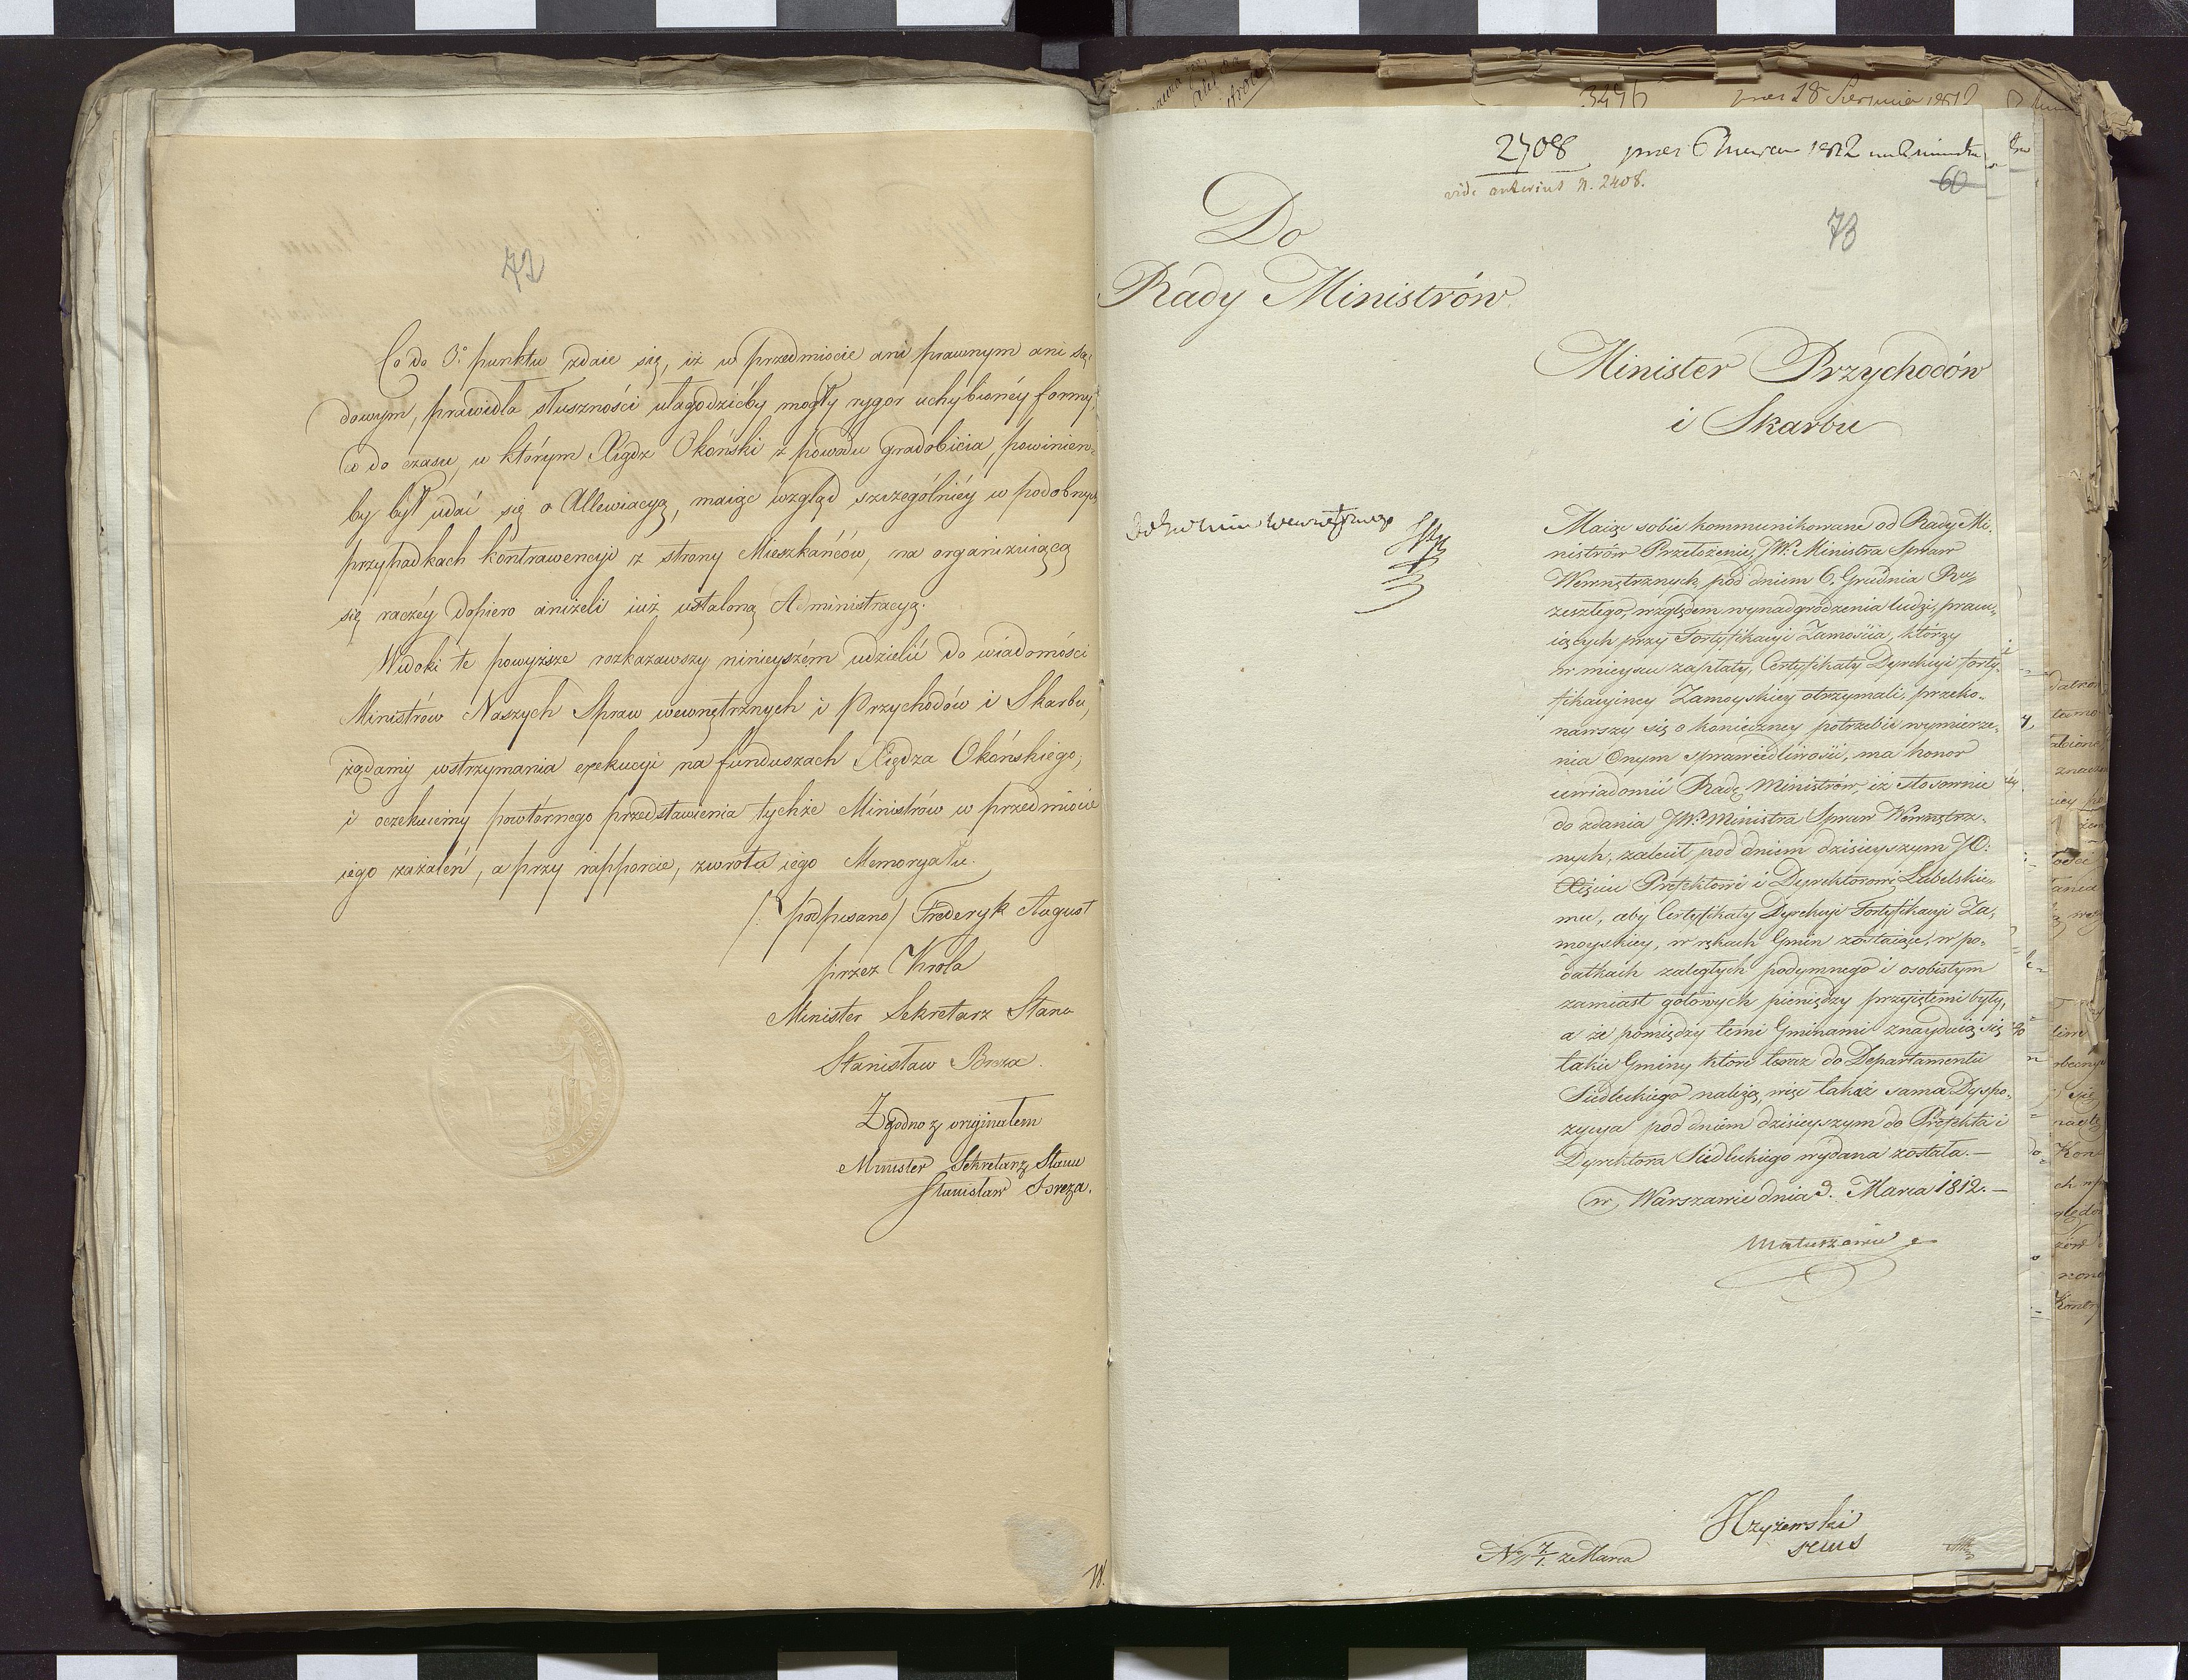 72
Co do 3º punktu zdaie się, iż w przedmiocie ani prawnym ani są-
dowym, prawidła słuszności ułagodzićby mogły rygor uchybionéy formy,
co do czasu, w którym Xiądz Okoński z powodu gradobicia, powinien-
by był udać się o Allewiacyą, maiąc wzgląd szczególniéy w podobnych
przypadkach kontrawencyi z strony Mieszkańców, na organizuiącą
się raczéy dopiero aniżeli iuż ustaloną Administracyą.
Widoki te powyższe rozkazawszy ninieyszém udzielić do wiadomości
Ministrów Naszych Spraw wewnętrznych i Przychodów i Skarbu,
żądamy wstrzymania exekucyi na funduszach Xiędza Okońskiego,
i oczekuiemy powtórnego przedstawienia tychże Ministrów w przedmiocie
iego zażaleń, a przy rapporcie, zwrotu iego Memoryału.
/: podpisano/ Frederyk August
przez Krola
Minister Sekretarz Stanu
Stanisław Breza.
Zgodno z originałem
Minister Sekretarz Stanu
Stanisław Breza.
W.
3496 18 Sierpnia 1812
2708 6 Marca 1812
vide anterius N. 2408.
60
73
Do
Rady Ministrów
Minister Przychodów
i Skarbu
wewnętrznego
Maiąc sobie kommunikowane od Rady Mi-
nistrów Przełożenie, JW. Ministra Spraw
Wewnętrznych pod dniem 6. Grudnia Ru
zeszłego, względem wynadgrodzenia ludzi, pracu-
iących przy Fortyfikacyi Zamościa, którzy
w mieyscu zapłaty, Certyfikaty Dyrekcyi forty-
fikacyiney Zamoyskiey otrzymali, przeko-
nawszy się o konieczney potrzebie wymierze-
nia Onym sprawiedliwości, ma honor
uwiadomić Radę Ministrów, iż stosownie
do zdania JWº Ministra Spraw Wewnętrz-
nych, zalecił pod dniem dzisieyszym JO:
Xięciu Prefektowi i Dyrektorowi Lubelskie-
mu, aby Certyfikaty Dyrekcyi Fortyfikacyi Za-
moyskiey, w rękach Gmin zostaiące, w po-
datkach zaległych podymnego i osobistym
zamiast gotowych pieniędzy przyiętemi były,
a że pomiędzy temi Gminami znayduią się
takie Gminy które teraz do Departamentu
Siedleckiego należą, więc takaż sama Dyspo-
zycya pod dniem dzisieyszym do Prefekta i
Dyrektora Siedleckiego wydana została.—
w Warszawie dnia 3. Marca 1812.—
Matuszewic
Nº 7/1. z Marca